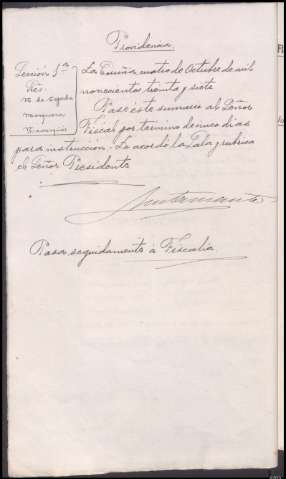 Providencia
Sección 1ª
Sres.
La Coruña cuatro de Octubre de mil
novecientos treinta y siete
Pase este sumario al Señor
Fiscal por término de cinco dias
para instrucción. Lo acordó la Sala y rubrica
el Señor Presidente
Pasa seguidamente á Fiscalia